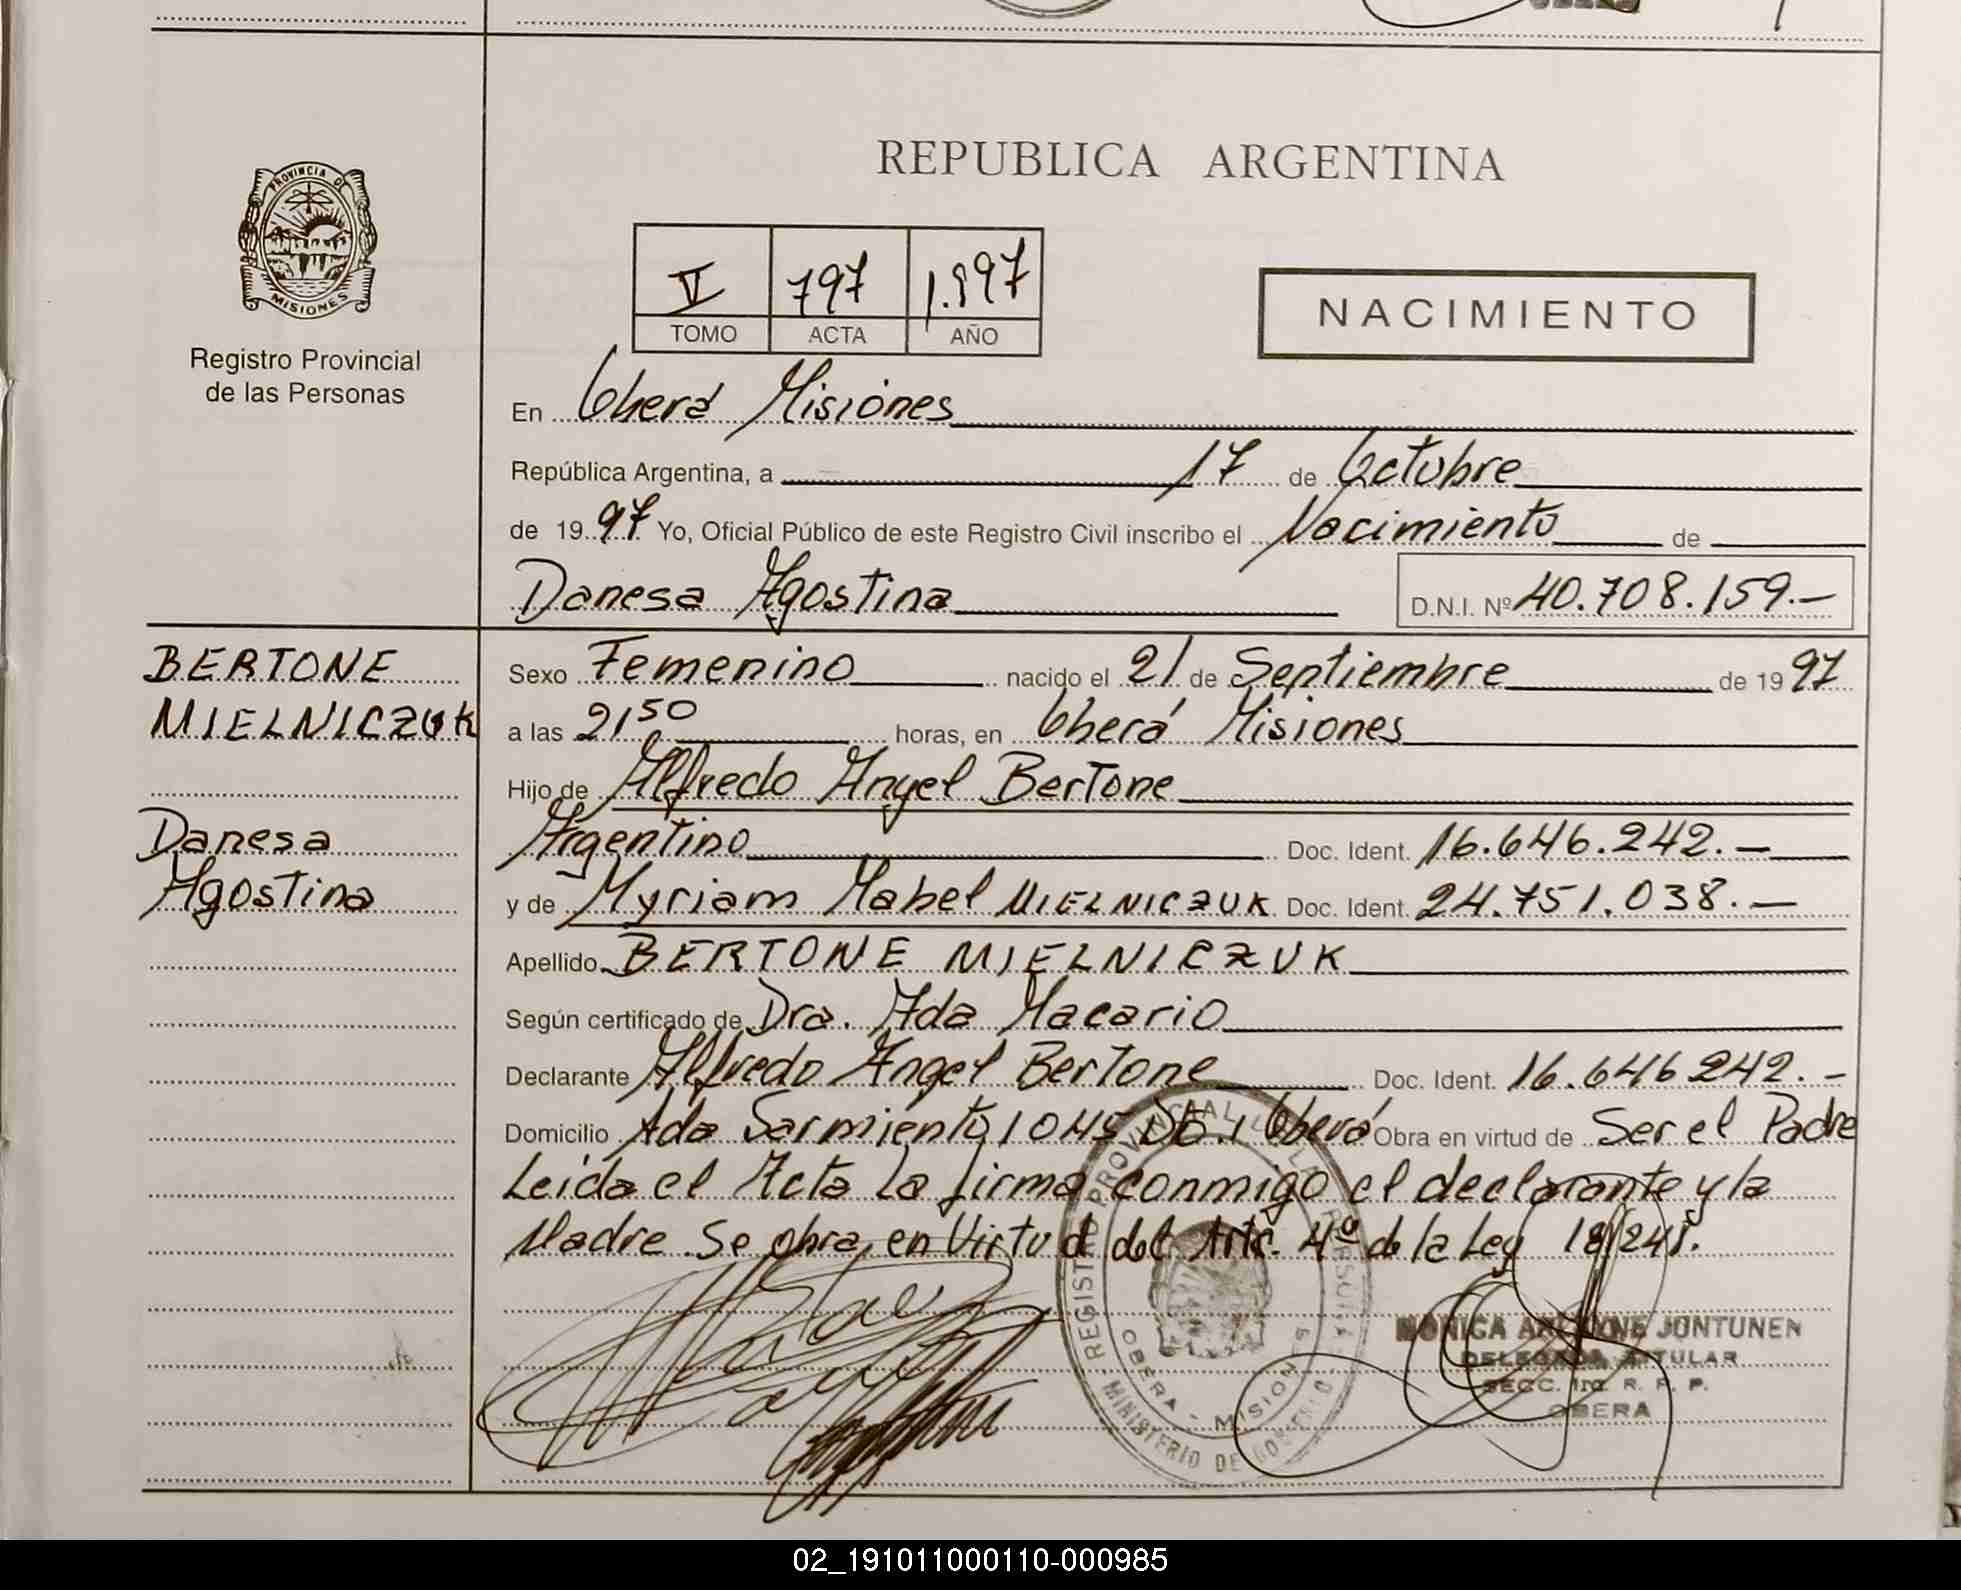 REPUBLICA ARGENTINA
PROVINCIA DE
MISIONES
Registro Provincial
de las Personas
V 797 1.997
TOMO ACTA AÑO
NACIMIENTO
En Oberá Misiones
República Argentina, a 17 de Octubre
de 1997 Yo, Oficial Público de este Registro Civil inscribo el Nacimiento de
Danesa Agostina D.N.I. Nº 40.708.159.-
BERTONE
MIELNICZUK
Danesa
Agostina
Sexo Femenino nacido el 21 de Septiembre de 1997
a las 21 50 horas, en Oberá Misiones
Hijo de Alfredo Angel Bertone
Argentino Doc. Ident. 16.646.242.-
y de Myriam Mabel MIELNICZUK Doc. Ident. 24.751.038.-
Apellido BERTONE MIELNICZUK
Según certificado de Dra. Ada Macario
Declarante Alfredo Angel Bertone Doc. Ident. 16.646242.-
Domicilio Ada Sarmiento 1045 Oberá Obra en virtud de Ser el Padre
Leida el Acta La firma conmigo el declarante y la
Madre. Se obra en Virtud del Art. 4º de la Ley 18.248.
REGISTRO PROVINCIAL DE LAS PERSONAS
OBERA - MISIONES
MINISTERIO DE GOBIERNO
MONICA JUNTUNEN
DELEGADA TITULAR
SECC. 1ra. R. P. P.
OBERA
02_191011000110-000985